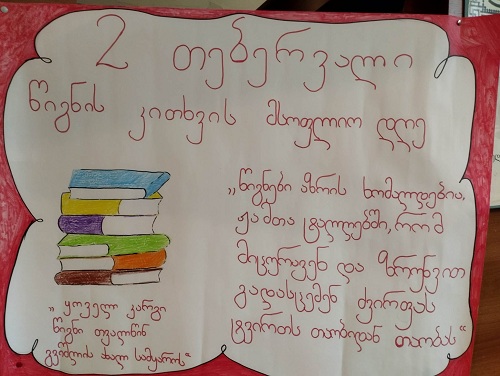 2 თებერვალი
წიგნის კითხვის მსოფლიო დღე
„წიგნები აზრის ხომალდებია,
ჟამთა ტალღებში, რომ
მიცურავენ და ზრუნვით
გადასცემენ ძვირფას
ტვირთს თაობიდან თაობას“
„ყოველ კარგი
წიგნი თვალწინ
გვიშლის ახალ სამყაროს“